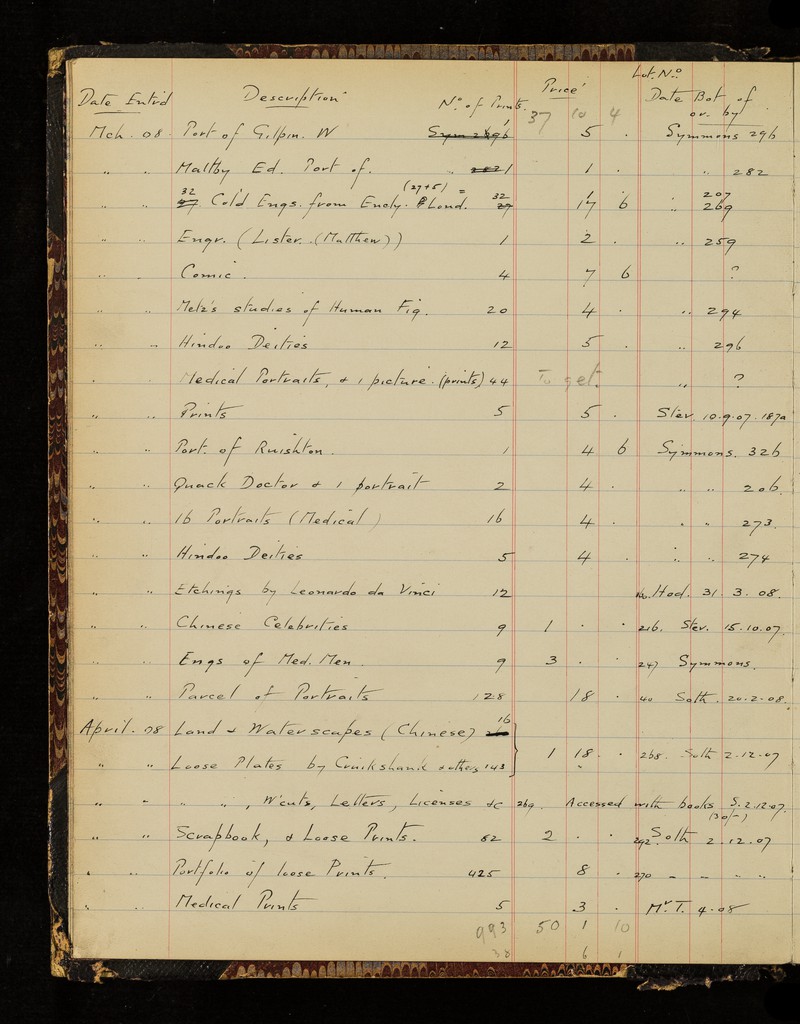 Lot. No.
Date Ent'd Description No. of Prints. Price Date Bot of
or. by
37 10 4
Mch. 08. Port of Gilpin. W 1 5 . Symmons 296
" " Maltby Ed. Port of. " 1 1 . " 282
32 (27+5) = 32 207
" " 27 Cold Engs. from Ency. Lond. 27 17 6 " 269
" " Engr. (Lister. (Matthew)) 1 2 . " 259
" " Comic. 4 7 6 ?
" " Metz's studies of Human Fig. 20 4 . " 294
" " Hindoo Deities 12 5 . " 296
" Medical Portraits, & 1 picture. (prints) 44 To get. " ?
" " Prints 5 5 . Stev. 10.9.07. 187a
" " Port. of Ruishton. 1 4 6 Symmons. 326
" " Quack Doctor & 1 portrait 2 4 . " " 206.
" " 16 Portraits (Medical) 16 4 . " " 273.
" " Hindoo Deities 5 4 . " " 274
" " Etchings by Leonardo da Vinci 12 Hod. 31. 3. 08.
" " Chinese Celebrities 9 1 . . 216. Stev. 15.10.07.
" " Engs of Med. Men. 9 3 . . 247 Symmons.
" " Parcel of Portraits 128 18 . 40 Soth. 20.2.08.
16
April. 08 Land & Waterscapes (Chinese)
1 18 . . 268. Soth 2.12.07
" " Loose Plates by Cruikshank & others 143
" " " " ", W'cuts, Letters, Licenses &c 269. Accessed with books S. 2.12.07.
(30/-)
" " Scrapbook, & Loose Prints. 82 2 . . 292 Soth 2.12.07
" " Portfolio of loose Prints. 425 8 . 270 - - " "
" " Medical Prints 5 3 . Mr T. 4.08
993 50 1 10
38 6 1